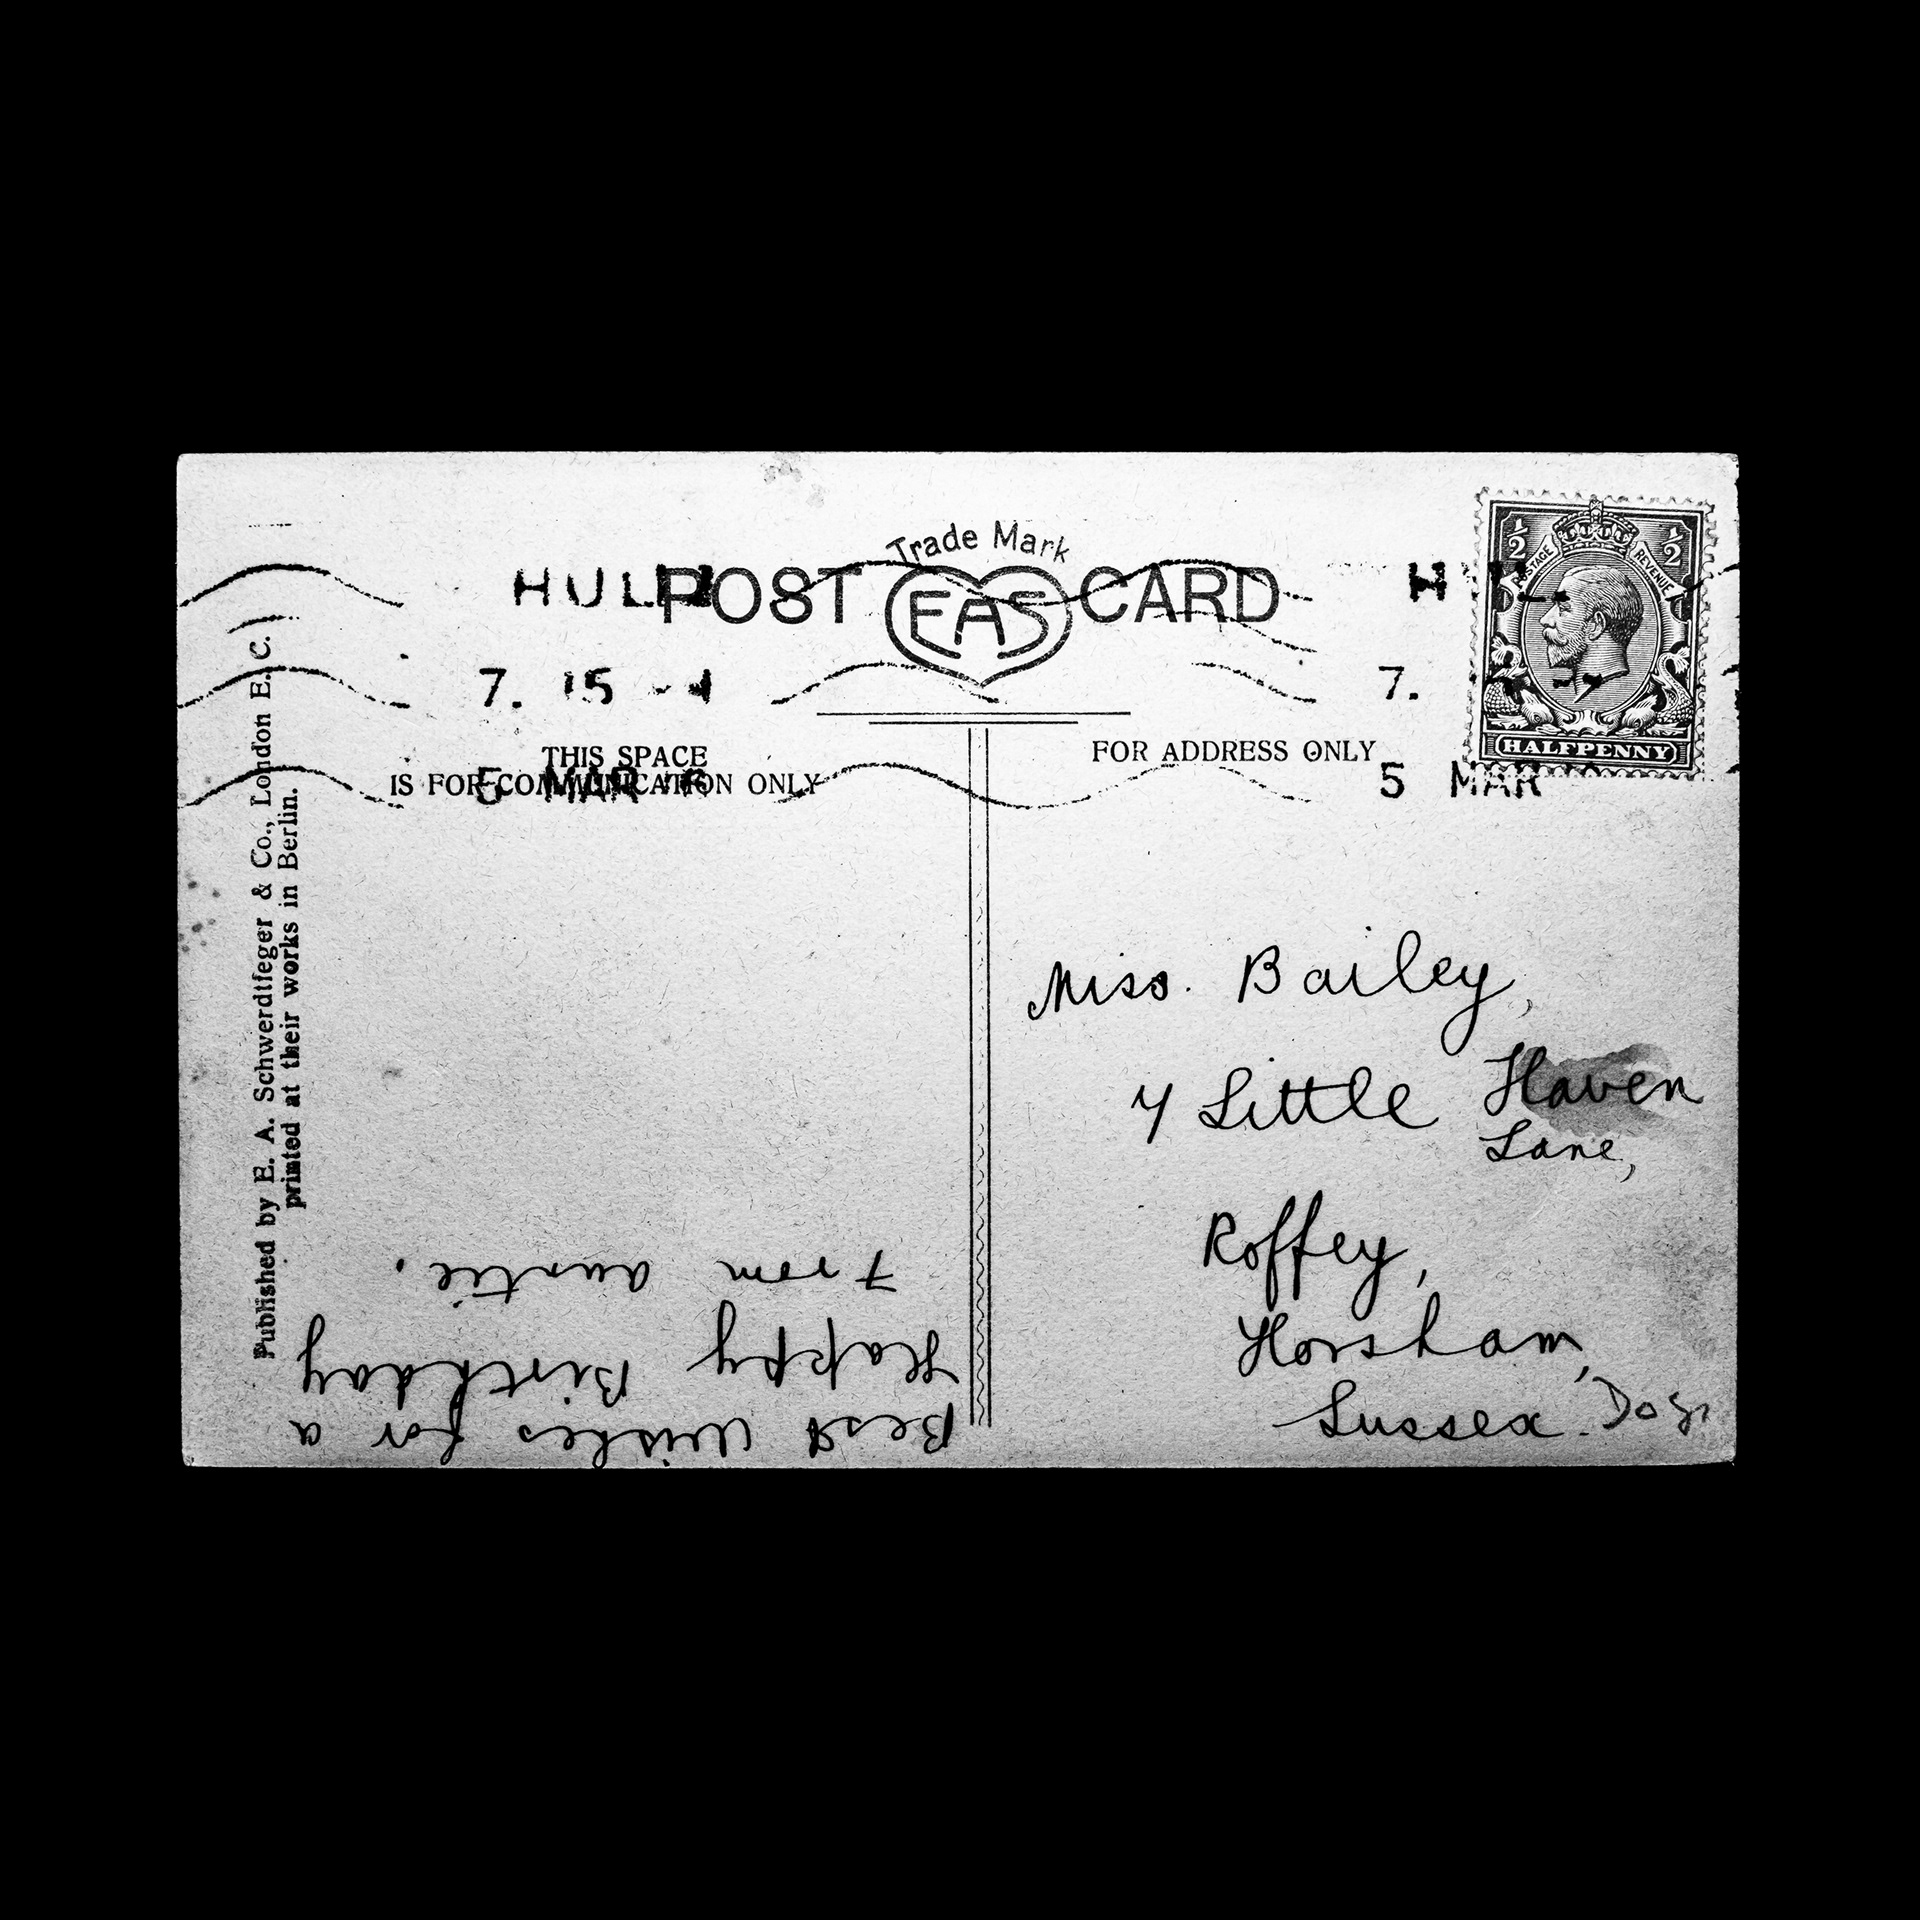 Trade Mark
POST EAS CARD
HULL
7. 15
5 MAR
H
7.
5 MAR
½ ½
POSTAGE REVENUE
HALFPENNY
THIS SPACE
IS FOR COMMUNICATION ONLY
FOR ADDRESS ONLY
Published by E. A. Schwerdtfeger & Co., London E. C.
printed at their works in Berlin.
Best wishes for a
Happy Birthday
From auntie.
Miss. Bailey,
4 Little Haven
Lane,
Roffey,
Horsham,
Sussex.